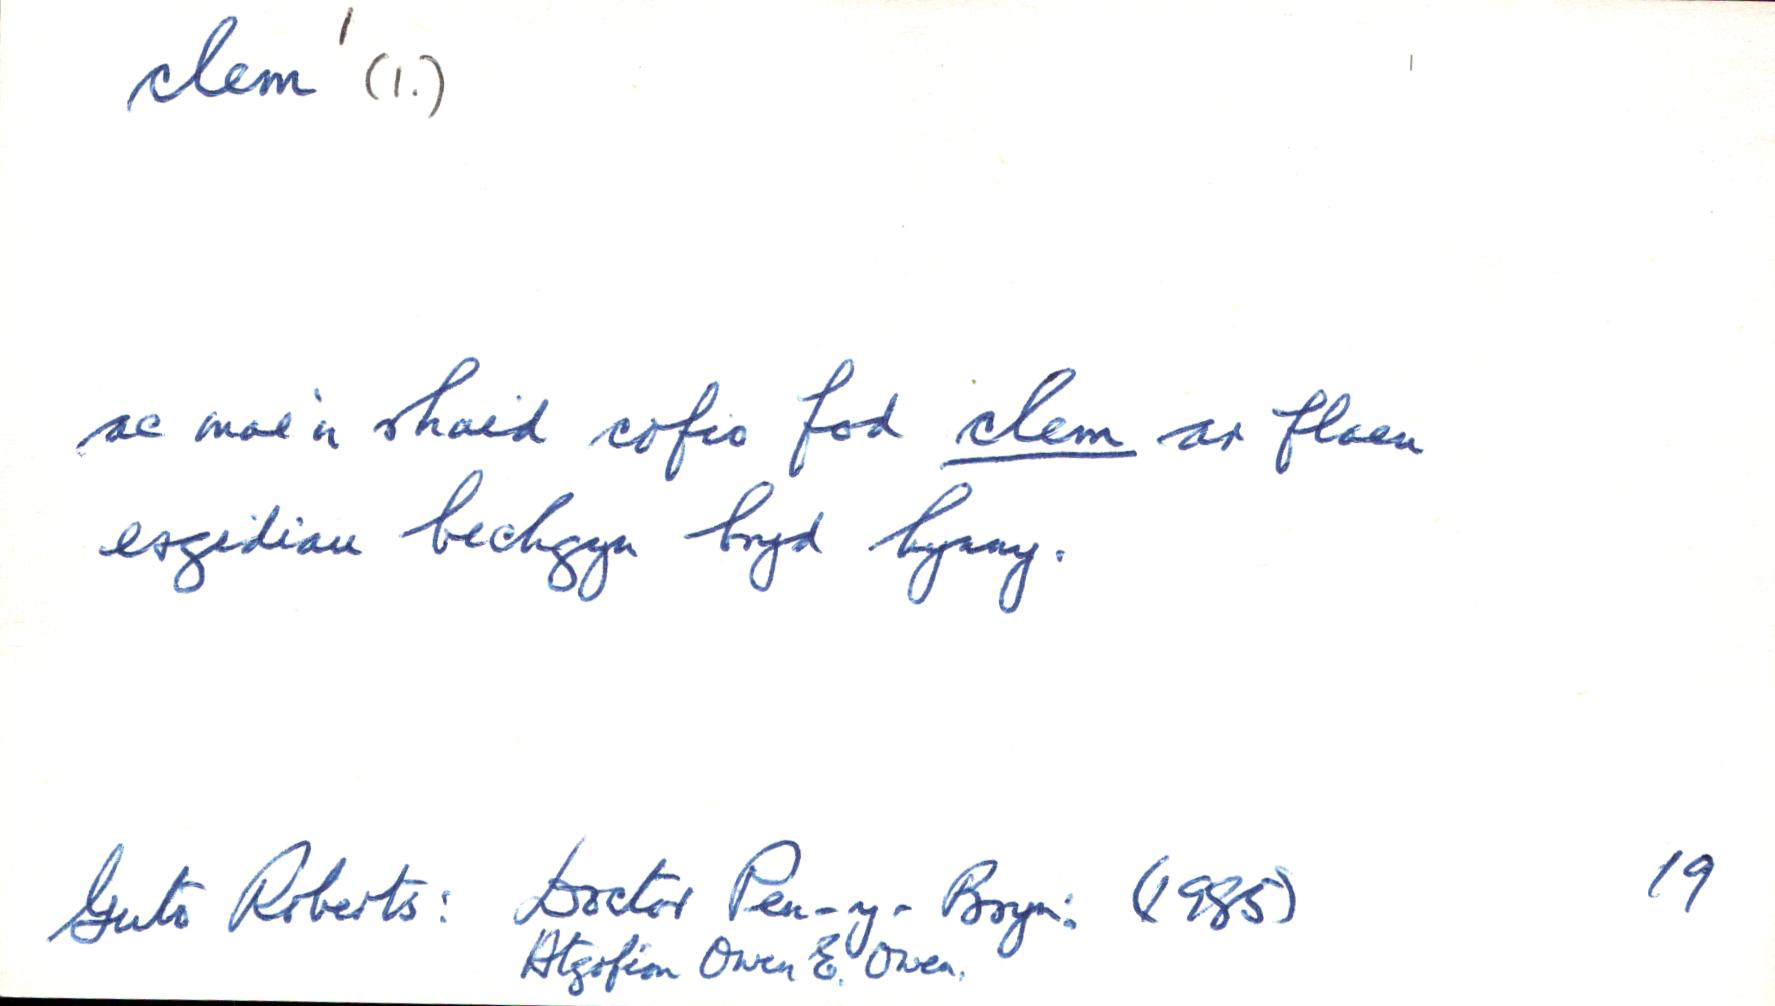 clem¹ (1.)
ac mae'n rhaid cofio fod clem ar flaen
esgidiau bechgyn bryd hynny.
Guto Roberts: Doctor Pen-y-Bryn: (1985) 19
Atgofion Owen E. Owen.